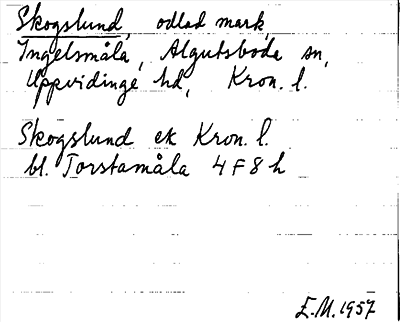 Skogslund, odlad mark,
Ingelsmåla, Algutsboda sn,
Uppvidinge hd, Kron. l.
Skogslund ek Kron. l.
bl. Torstamåla 4 F 8 h
E.M. 1957